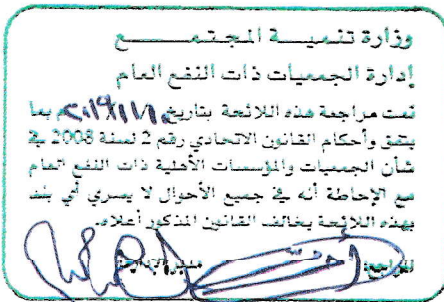 وزارة تنميـــة المجتمـــــــع
إدارة الجمعيات ذات النفع العام
تمت مراجعة هذه اللائحة بتاريخ م بما
يتفق وأحكام القانون الاتحادي رقم 2 لسنة 2008 في
شأن الجمعيات والمؤسسات الأهلية ذات النفع العام
مع الإحاطة أنه في جميع الأحوال لا يسري أي بند
بهذه اللائحة يخالف القانون المذكور أعلاه.
المراجع: مدير الإدارة